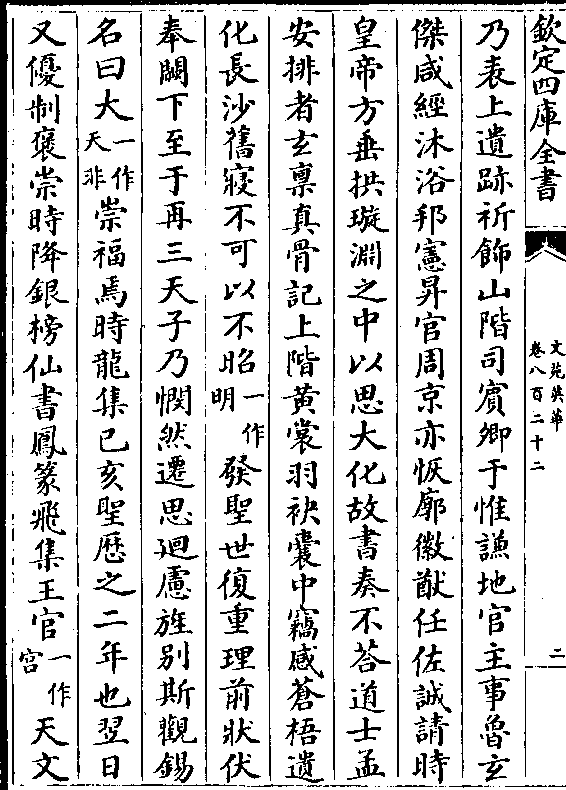 欽定四庫全書
文苑英華
卷八百二十二
二
乃表上遺跡祈飾山階司賓卿于惟謙地官主事魯玄
傑咸經沐浴邦憲昇官周京亦恢廓徽猷任佐誠請時
皇帝方垂拱璇淵之中以思大化故書奏不荅道士孟
安排者玄稟真骨記上階黄裳羽袂囊中竊感蒼梧遺
化長沙舊寢不可以不昭一作明發聖世復重理前狀伏
奉闕下至于再三天子乃憫然遷思迴慮旌别斯觀錫
名曰大一作天非崇福焉時龍集已亥聖歴之二年也翌日
又優制襃崇時降銀榜仙書鳳篆飛集王官一作宫天文